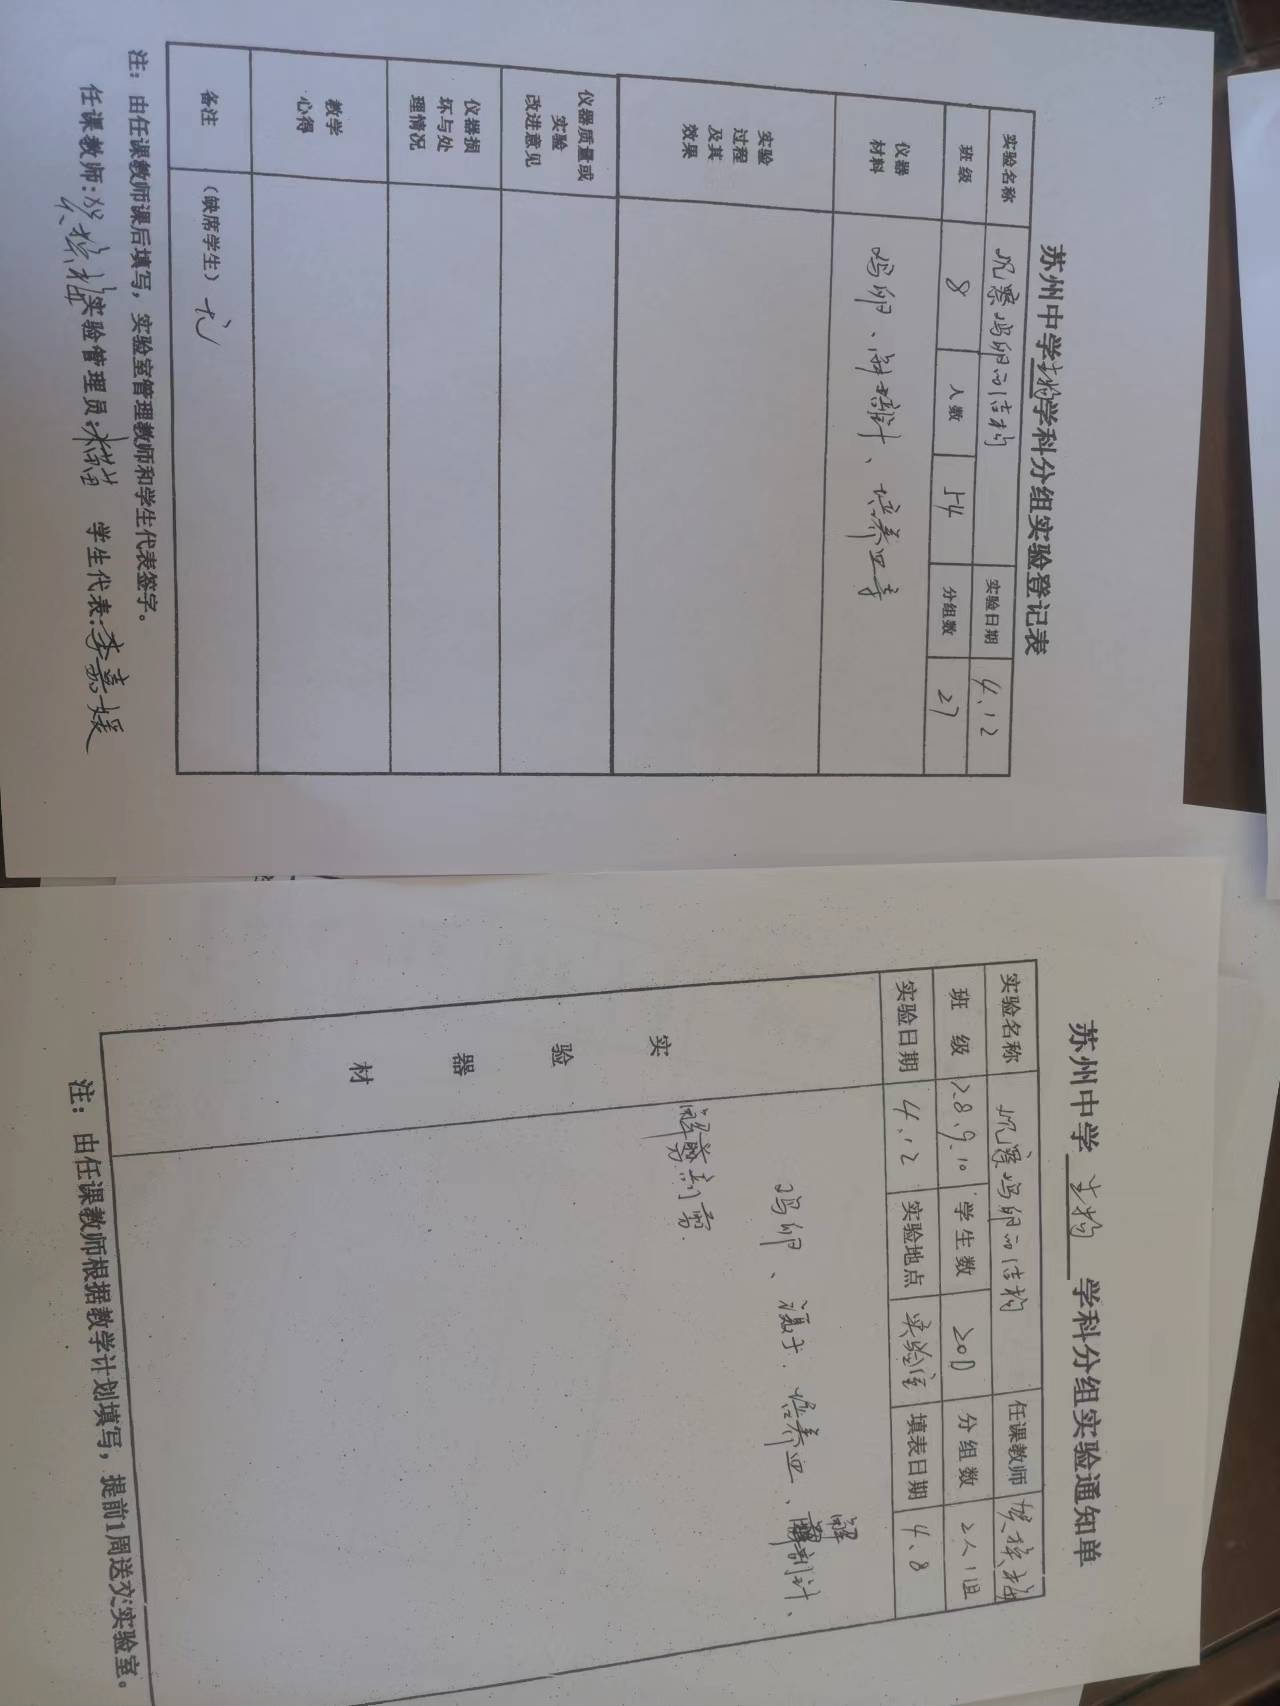 苏州中学生物学科分组实验登记表
实验名称 观察鸡卵的结构 实验日期 4.12
班级 8 人数 54 分组数 27
仪器材料 鸡卵、解剖针、培养皿等
实验过程及其效果
仪器质量或实验改进意见
仪器损坏与处理情况
教学心得
备注 (缺席学生) 无
注：由任课教师课后填写，实验室管理教师和学生代表签字。
任课教师: 实验管理员: 学生代表:李嘉媛
苏州中学 生物 学科分组实验通知单
实验名称 观察鸡卵的结构 任课教师
班级 2.8.9.10 学生数 200 分组数 2人1组
实验日期 4.12 实验地点 实验室 填表日期 4.8
实验器材 鸡卵、镊子、培养皿、解剖针、
解剖剪
注：由任课教师根据教学计划填写，提前1周送交实验室。